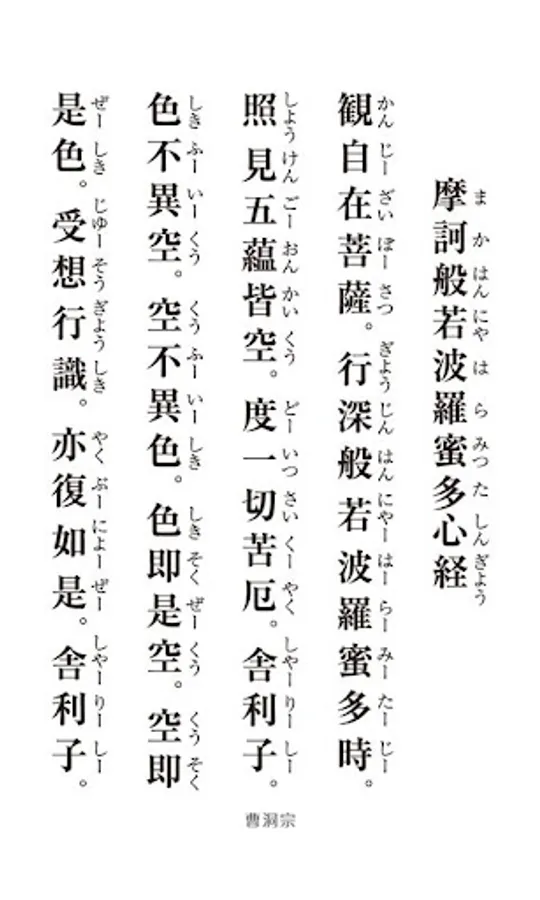 摩訶般若波羅蜜多心経
まかはんにゃはらみつたしんぎょう
観自在菩薩。行深般若波羅蜜多時。
かんじーざいぼーさつ ぎょうじんはんにゃーはーらーみーたーじー
照見五蘊皆空。度一切苦厄。舎利子。
しょうけんごーおんかいくう どーいっさいくーやく しゃーりーしー
色不異空。空不異色。色即是空。空即
しきふーいーくう くうふーいーしき しきそくぜーくう くうそく
是色。受想行識。亦復如是。舎利子。
ぜーしき じゅーそうぎょうしき やくぶーにょーぜー しゃーりーしー
曹洞宗